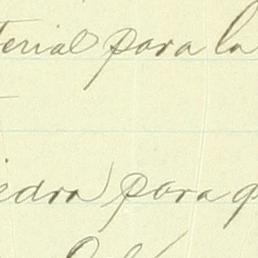 terial para la
iedra para q